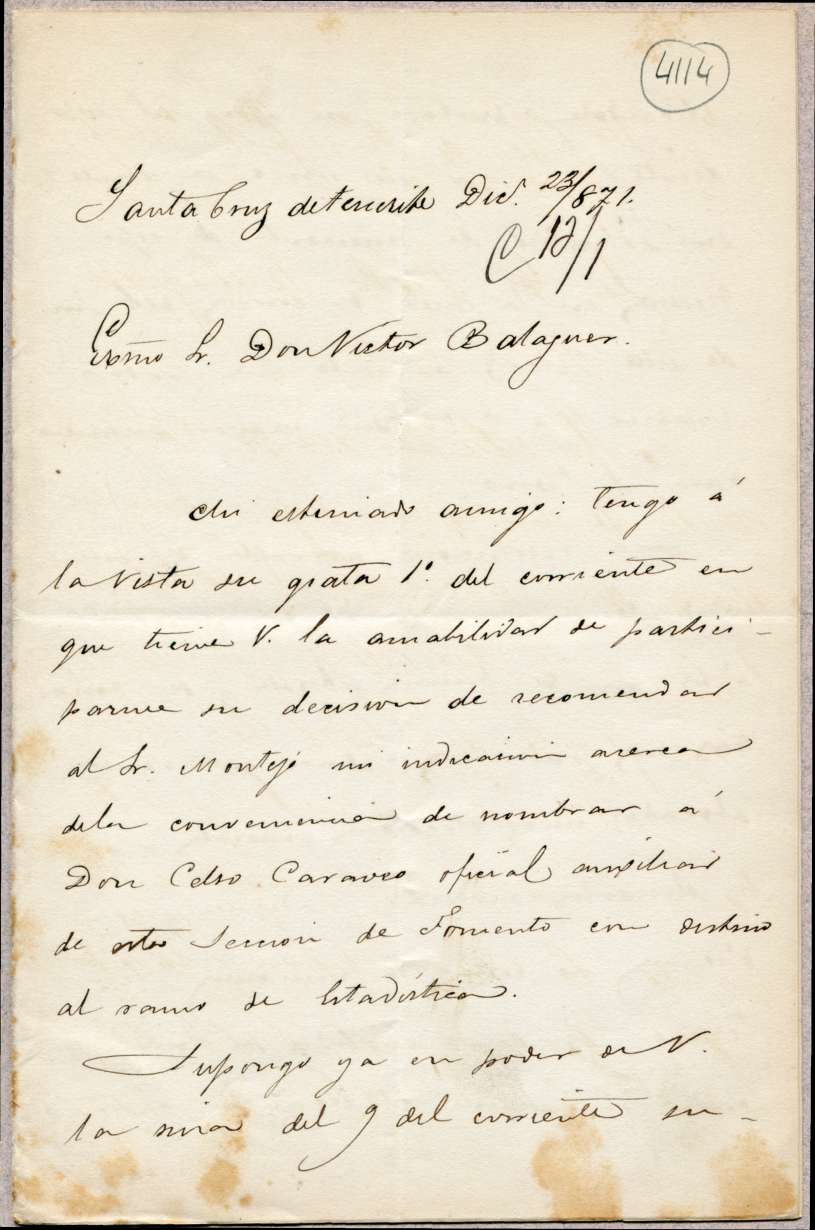 4114
Santa Cruz de Tenerife Dic. 23/871.
C 12/1
Exmo Sr. Don Victor Balaguer.
Mi estimado amigo: tengo á
la vista su grata 1º. del corriente en
que tiene V. la amabilidad de partici-
parme su decision de recomendar
al Sr. Montejo mi indicacion acerca
dela conveniencia de nombrar á
Don Celso Caraveo oficial auxiliar
de esta Seccion de Fomento con destino
al ramo de Estadística.
Supongo ya en poder de V.
la mia del 9 del corriente su-